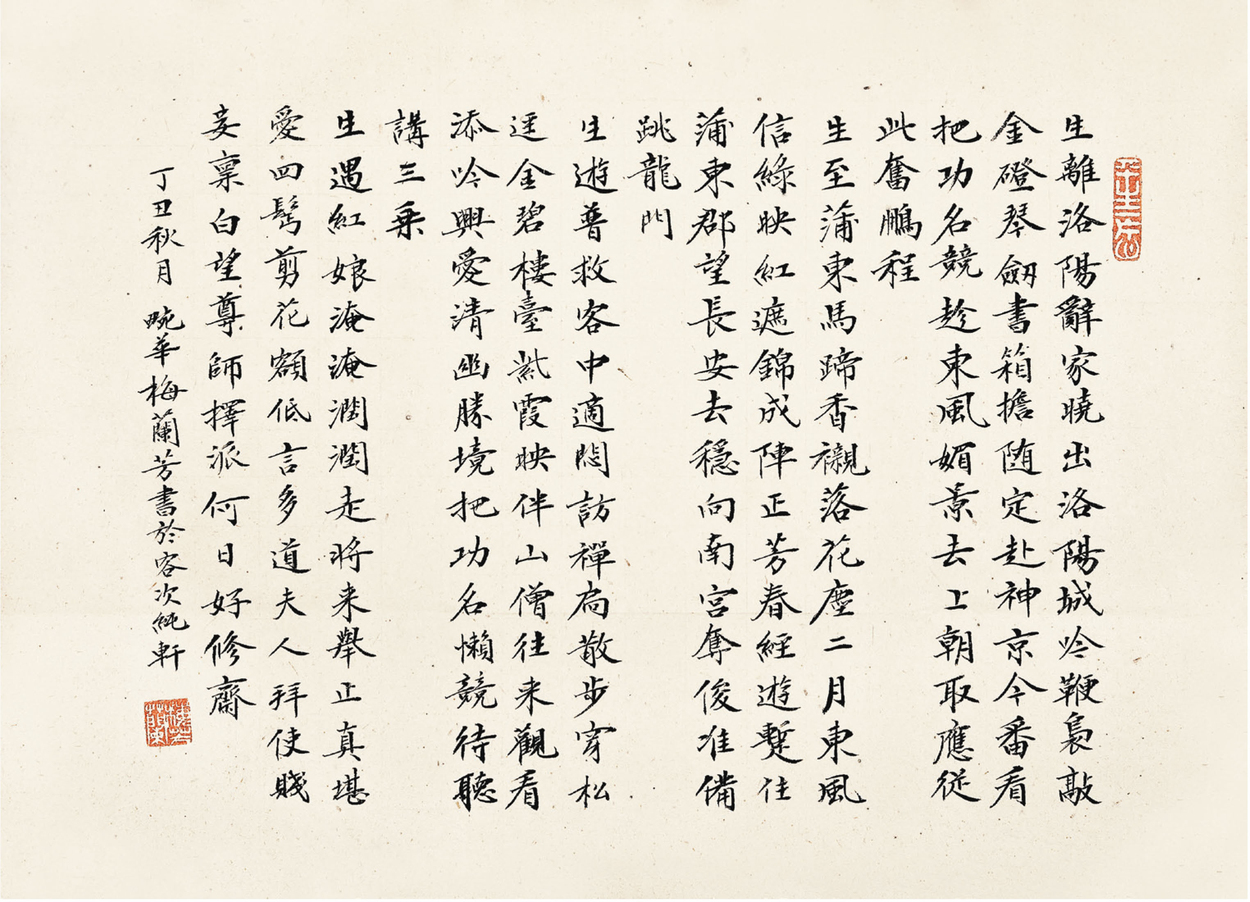 生離洛陽辭家曉出洛陽城吟鞭裊敲
金磴琴劔書箱擔随定赴神京今番看
把功名競趁東風媚景去上朝取應従
此奮鵬程
生至蒲東馬蹄香襯落花塵二月東風
信綠映紅遮錦成陣正芳春經遊暫住
蒲東郡望長安去穩向南宮奪俊准備
跳龍門
生遊普救客中適悶訪禪扃散步穿松
逕金碧樓臺紫霞映伴山僧往来觀看
添吟興愛清幽勝境把功名懶競待聽
講三乗
生遇紅娘淹淹潤潤走将来舉止真堪
愛四鬢剪花額低言多道夫人拜使賤
妾稟白望尊師擇派何日好修齋
丁丑秋月 畹華梅蘭芳書於客次純軒